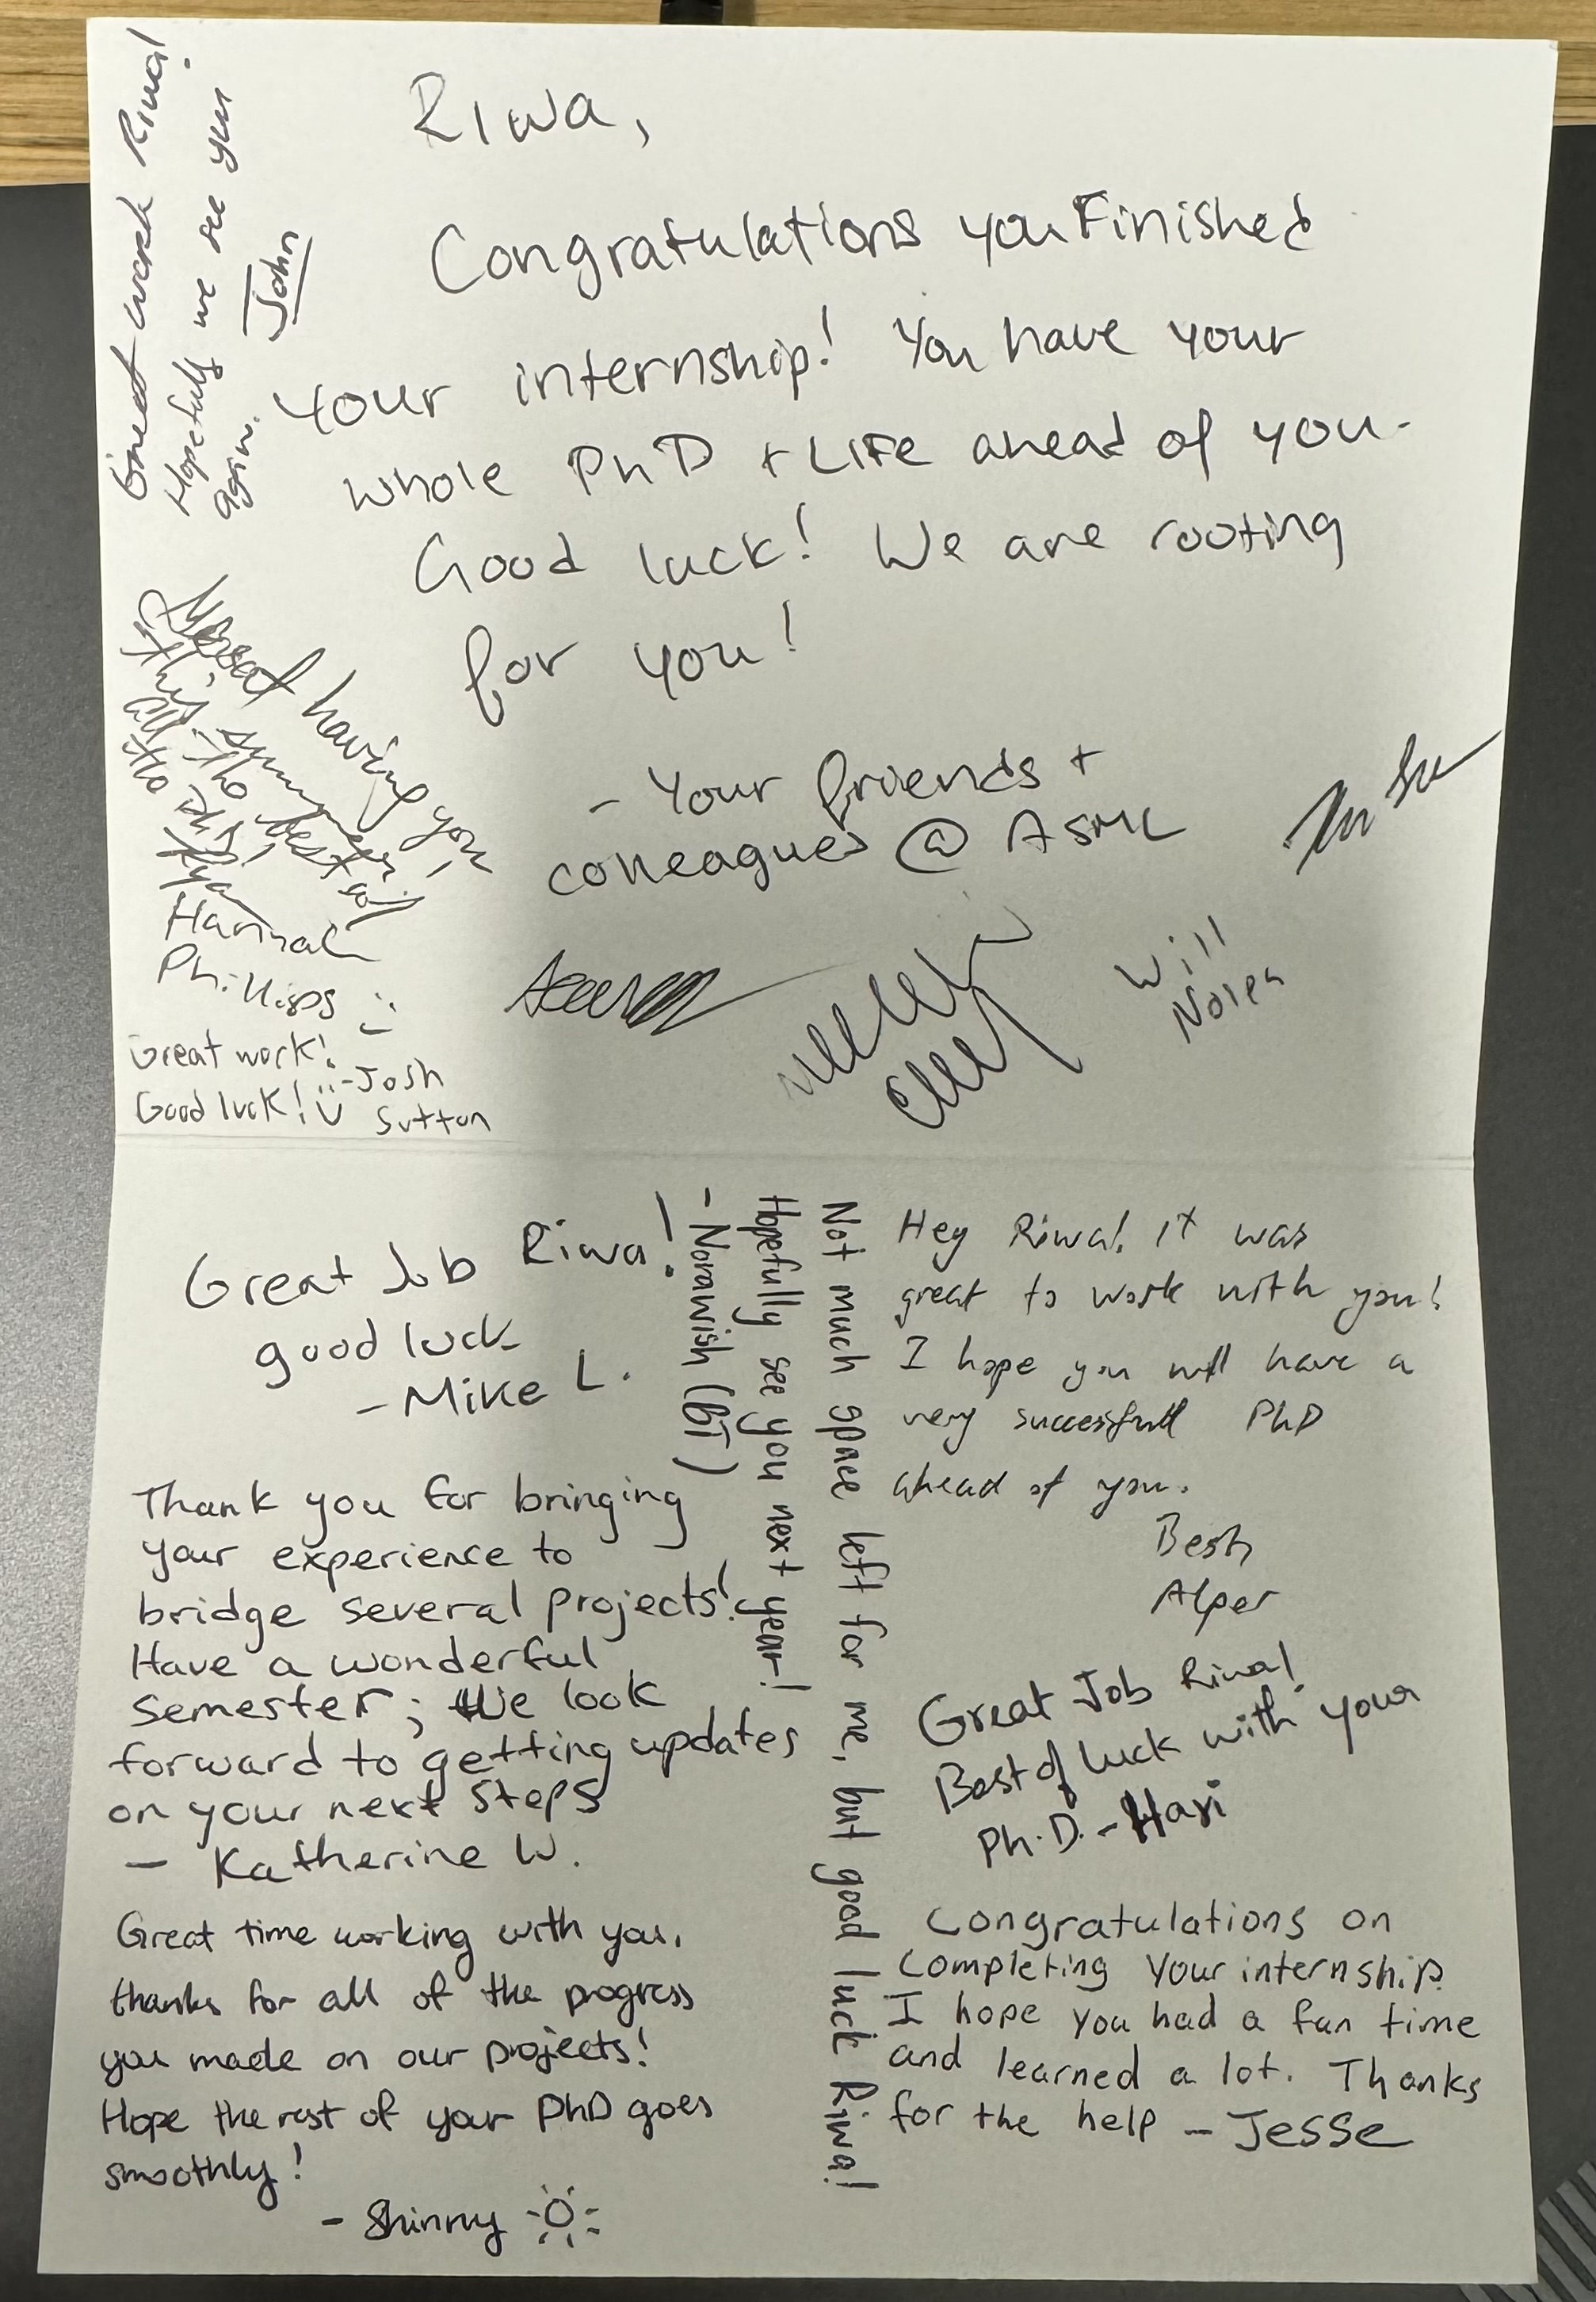 Riwa,
Congratulations you Finished
your internship! You have your
whole PhD + Life ahead of you.
Good luck! We are rooting
for you!
- Your friends +
colleagues @ ASML
Great work Riwa!
Hopefully we see you
again. John
great having you
this summer!
all the best w/
the PhD!
Ryan
Hannah
Phillips :)
Great work!
Good luck! :) -Josh
Sutton
Will
Nolen
Great Job Riwa!
good luck
- Mike L.
Thank you for bringing
your experience to
bridge several projects!
Have a wonderful
semester; We look
forward to getting updates
on your next steps
- Katherine W.
Great time working with you,
thanks for all of the progress
you made on our projects!
Hope the rest of your PhD goes
smoothly!
- Shinny
Not much space left for me, but good luck Riwa!
Hopefully see you next year!
- Norawish (BT)
Hey Riwa! It was
great to work with you!
I hope you will have a
very successfull PhD
ahead of you.
Best,
Alper
Great Job Riwa!
Best of luck with your
Ph.D. - Hari
Congratulations on
completing your internship.
I hope you had a fun time
and learned a lot. Thanks
for the help - Jesse